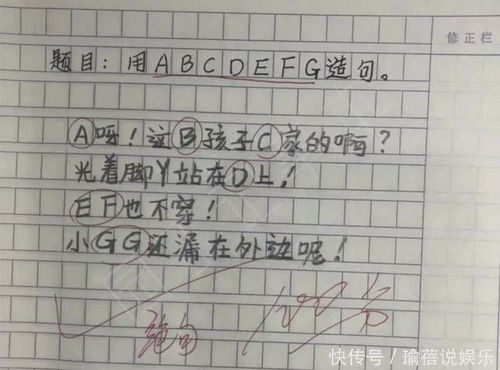 修正栏
题目：用ABCDEFG造句。
A呀！这B孩子C家的啊？
光着脚丫站在D上！
EF也不穿！
小GG还漏在外边呢！
绝句
100分
快传号／瑜蓓说娱乐